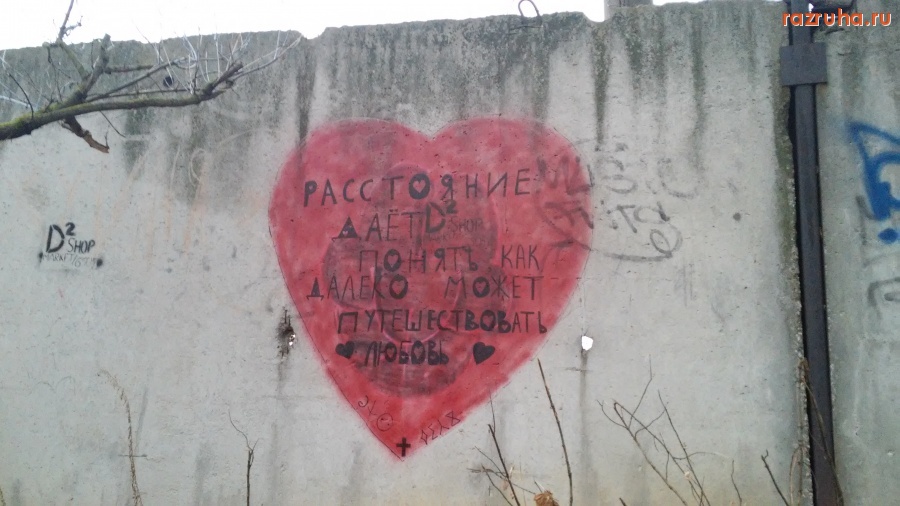 razruha.ru
РАССТОЯНИЕ
ДАЁТ
D² SHOP
ПОНЯТЬ КАК
ДАЛЕКО МОЖЕТ
ПУТЕШЕСТВОВАТЬ
ЛЮБОВЬ
D² SHOP